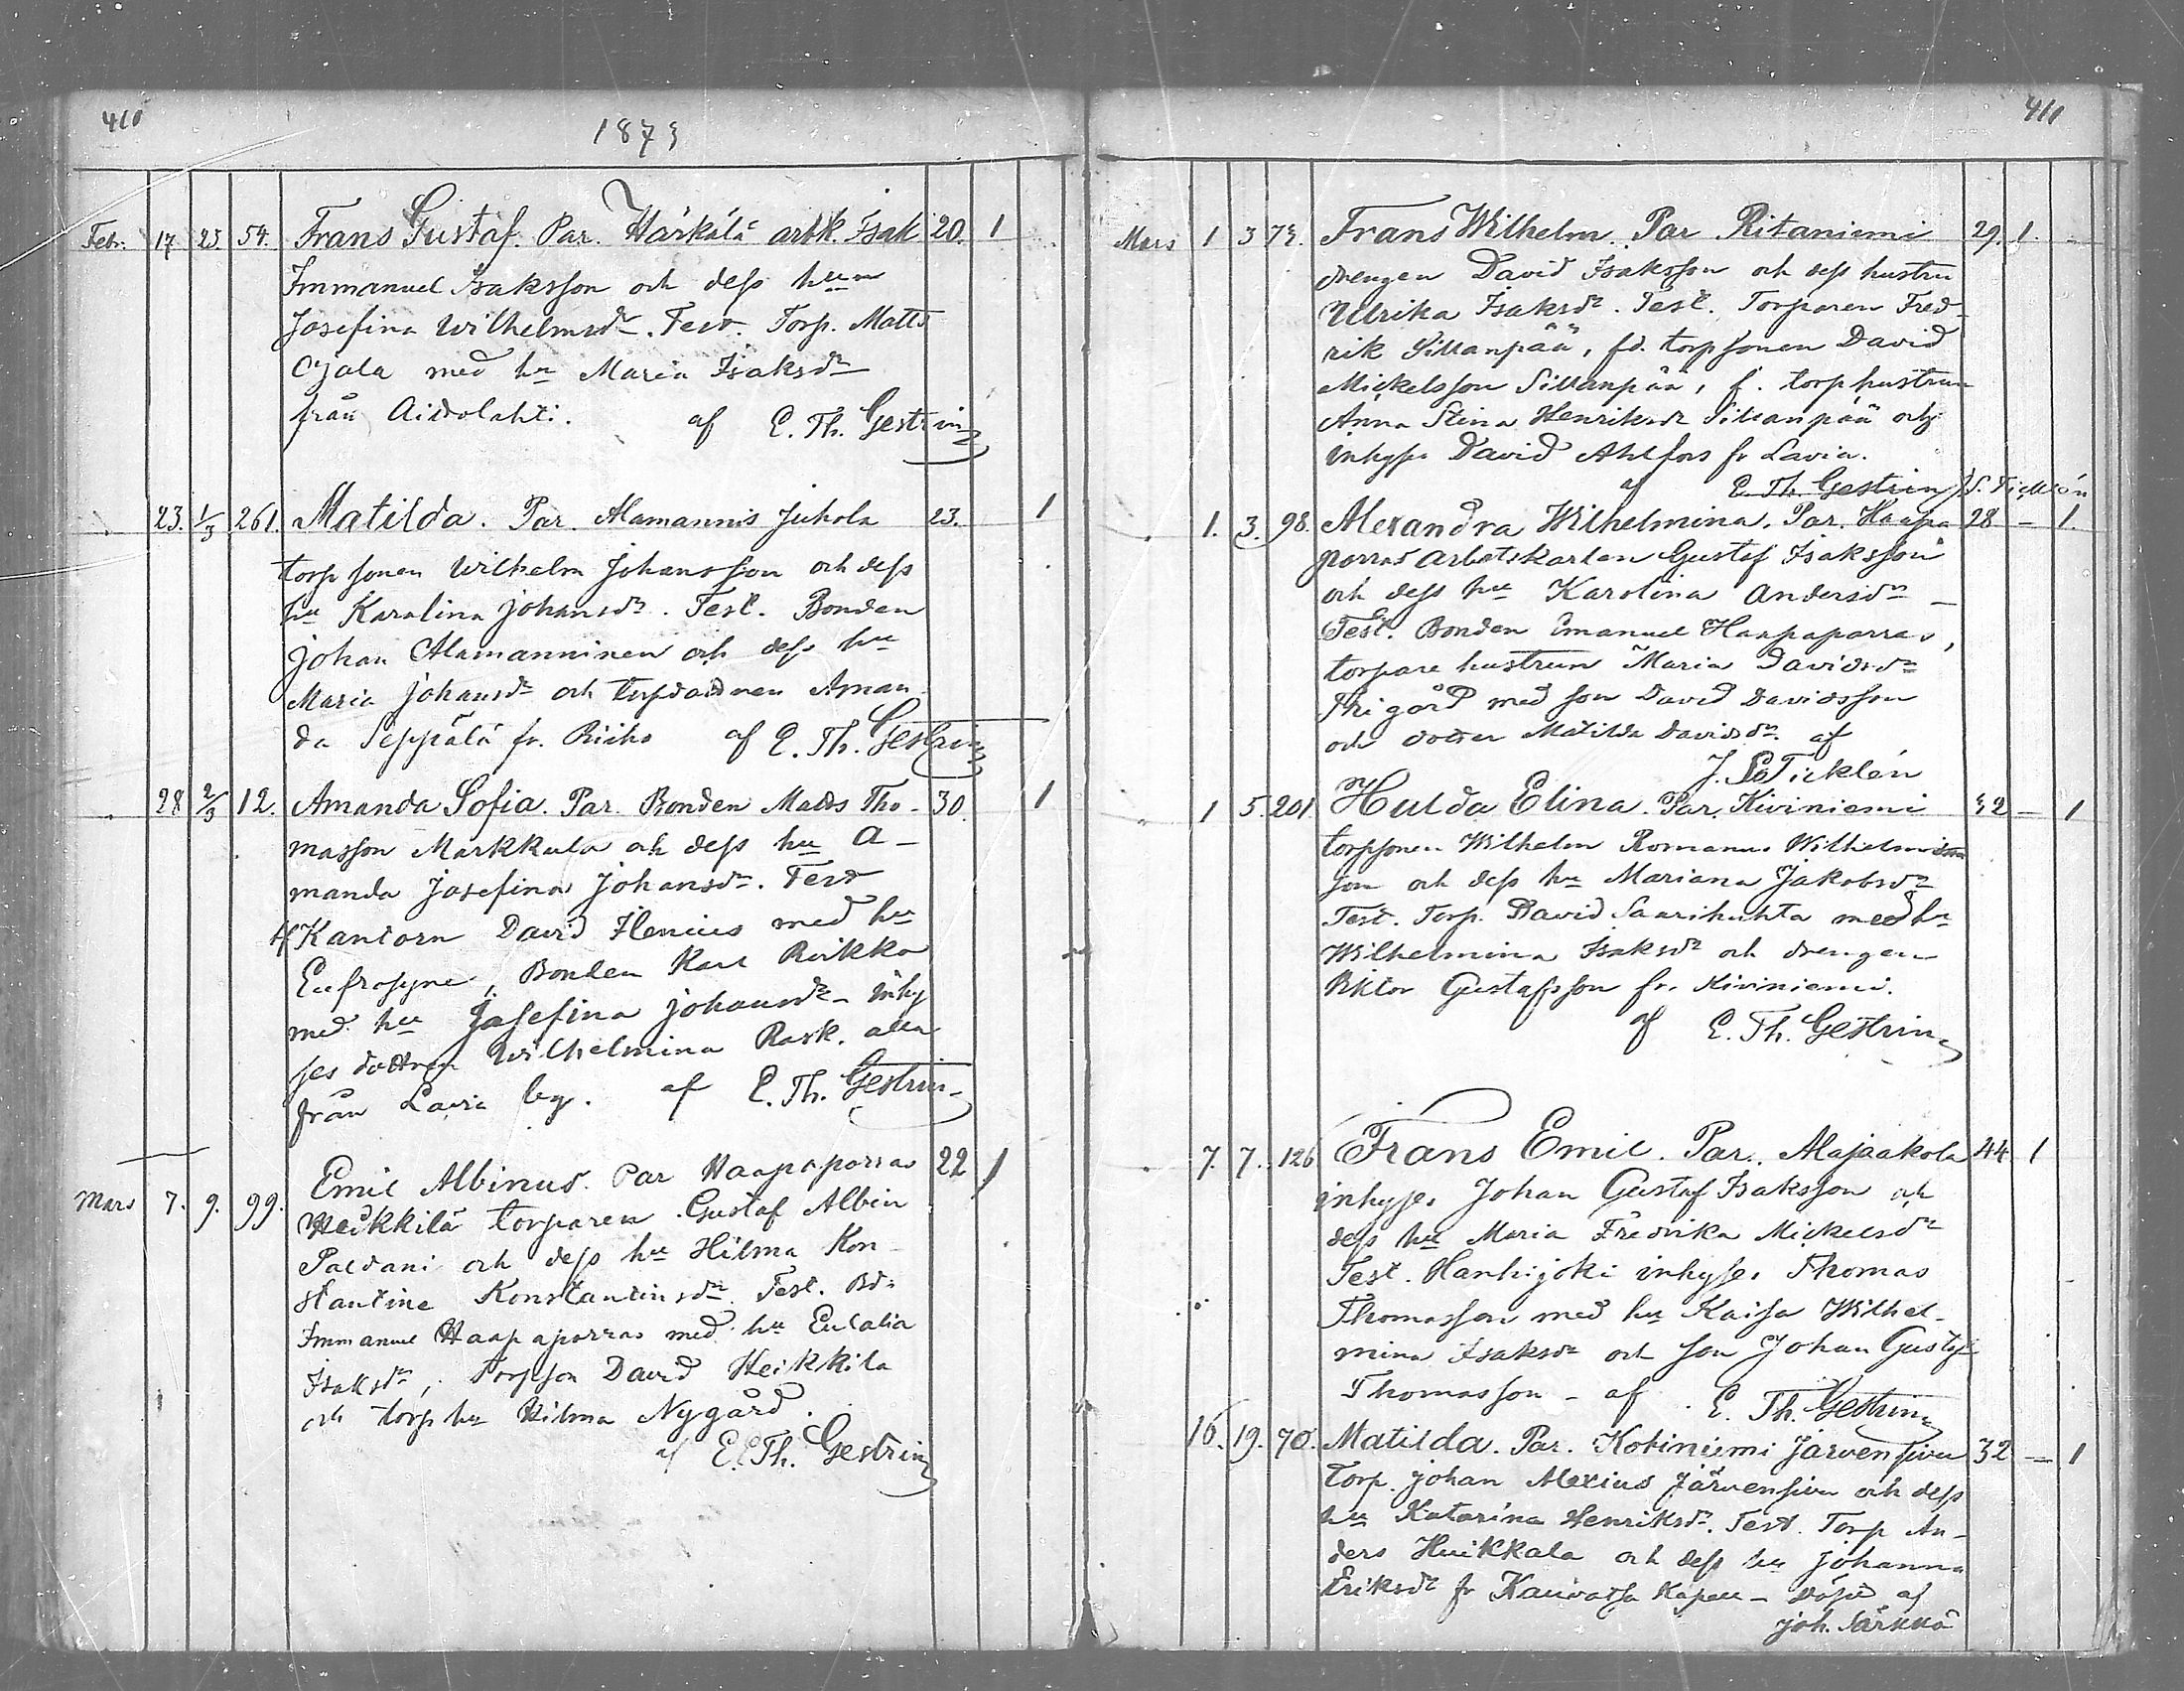 410
1873
Febr. 17. 23. 54. Frans Gustaf. Par. Härkälä arbk. Isak 20. 1
Immanuel Isaksson och dess hu
Josefina Wilhelmsdr. Test. Torp. Matts
Ojala med hu Maria Isaksdr
från Aidolahti. af E. Th. Gestrin
23. 1/3 261. Matilda. Par. Alamannis Juhola 23. 1
torpsonen Wilhelm Johansson och dess
hu Karalina Johansdr. Test. Bonden
Johan Alamanninen och dess hu
Maria Johansdr och torpdottren Aman
da Seppälä fr. Riiho af E. Th. Gestrin
28 2/3 12. Amanda Sofia. Par. Bonden Matts Tho- 30. 1
masson Markkula och dess hu A-
manda Josefina Johansdr. Test
Kantorn David Ilenius med hu
Eufrosyne, Bonden Karl Reikko
med hu Josefina Johansdr - inhy
ses dottren Wilhelmina Rask. alla
från Lavia by. af E. Th. Gestrin
Mars 7. 9. 99. Emil Albinus. Par Haapaporras 22 1
Heikkilä torparen Gustaf Albin
Paldani och dess hu Hilma Kon-
stantine Konstantinsdr. Test. Bd:
Immanuel Haapaporras med hu Eulalia
Isaksdr, Torpson David Heikkila
och torp hu Hilma Nygård.
af E. Th. Gestrin
411
Mars 1 3 73. Frans Wilhelm. Par Ritaniemi 29. 1. -
drengen David Isaksson och dess hustru
Ulrika Isaksdr. Test. Torparen Fred-
rik Sillanpää, fd. torpsonen David
Mickelsson Sillanpää, f. torphustrun
Anna Stina Henriksdr Sillanpää och
inhyses David Ahlfors fr Lavia.
af E. Th. Gestrin
1. 3. 98. Alexandra Wilhelmina. Par. Haapa 28 - 1.
porras arbetskarlen Gustaf Isaksson
och dess hu Karolina Andersdr -
Test. Bonden Emanuel Haapaporras,
torpare hustrun Maria Davidsdr
med son David Davidsson
och dotter Matilda Davidsdr. af
J. Ticklén
1 5. 201 Hulda Elina. Par. Kiviniemi 32 - 1
torpsonen Wilhelm Romanus Wilhelms
son och dess hu Mariana Jakobsdr
Test. Torp. David Saarihuhta med hu
Wilhelmina Isaksdr och drengen
Viktor Gustafsson fr. Kiviniemi.
af E. Th. Gestrin
7. 7. 126 Frans Emil. Par. Alajaakola 44 1
inhyses Johan Gustaf Isaksson och
dess hu Maria Fredrika Mickelsdr
Test. Hanhijoki inhyses Thomas
Thomasson med hu Kaisa Wilhel-
mina Isaksdr och son Johan Gustaf
Thomasson - af E. Th. Gestrin
16. 19. 70. Matilda. Par. Kotiniemi Järvensivu 32 - 1
Torp. Johan Alexius Järvensivu och dess
hu Katarina Henriksdr. Test. Torp An-
ders Huikkala och dess hu Johanna
Eriksdr fr Kauvatsa Kapell - döpt af
Joh. Särkkä